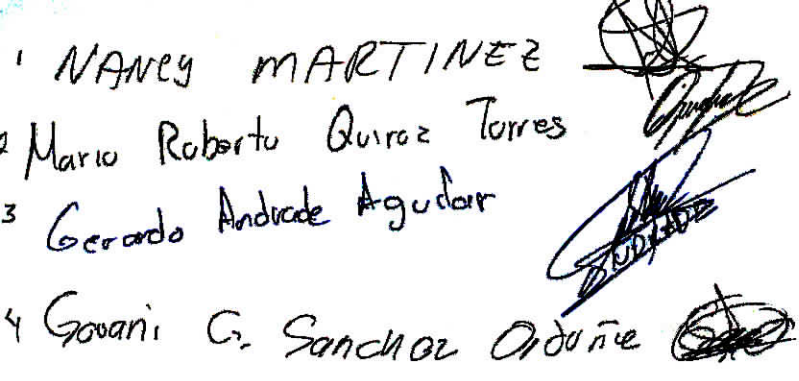 1 NANCY MARTINEZ
2 Mario Roberto Quiroz Torres
3 Gerardo Andrade Aguilar ANDRADE
4 Govani G. Sanchez Orduñe